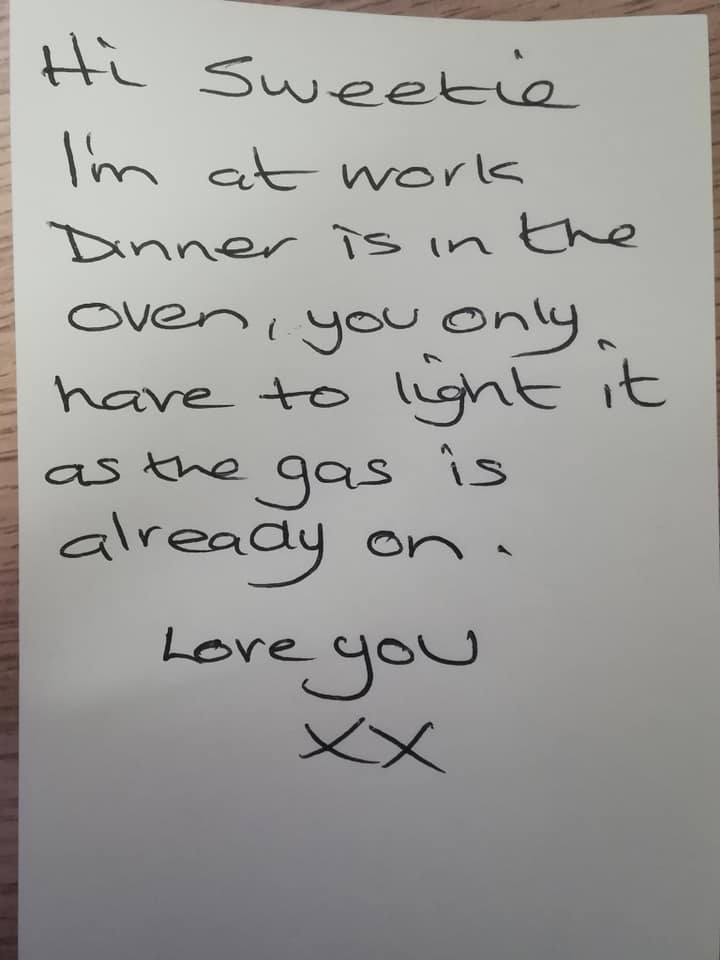 Hi Sweetie
I'm at work
Dinner is in the
oven, you only
have to light it
as the gas is
already on.
Love you
XX